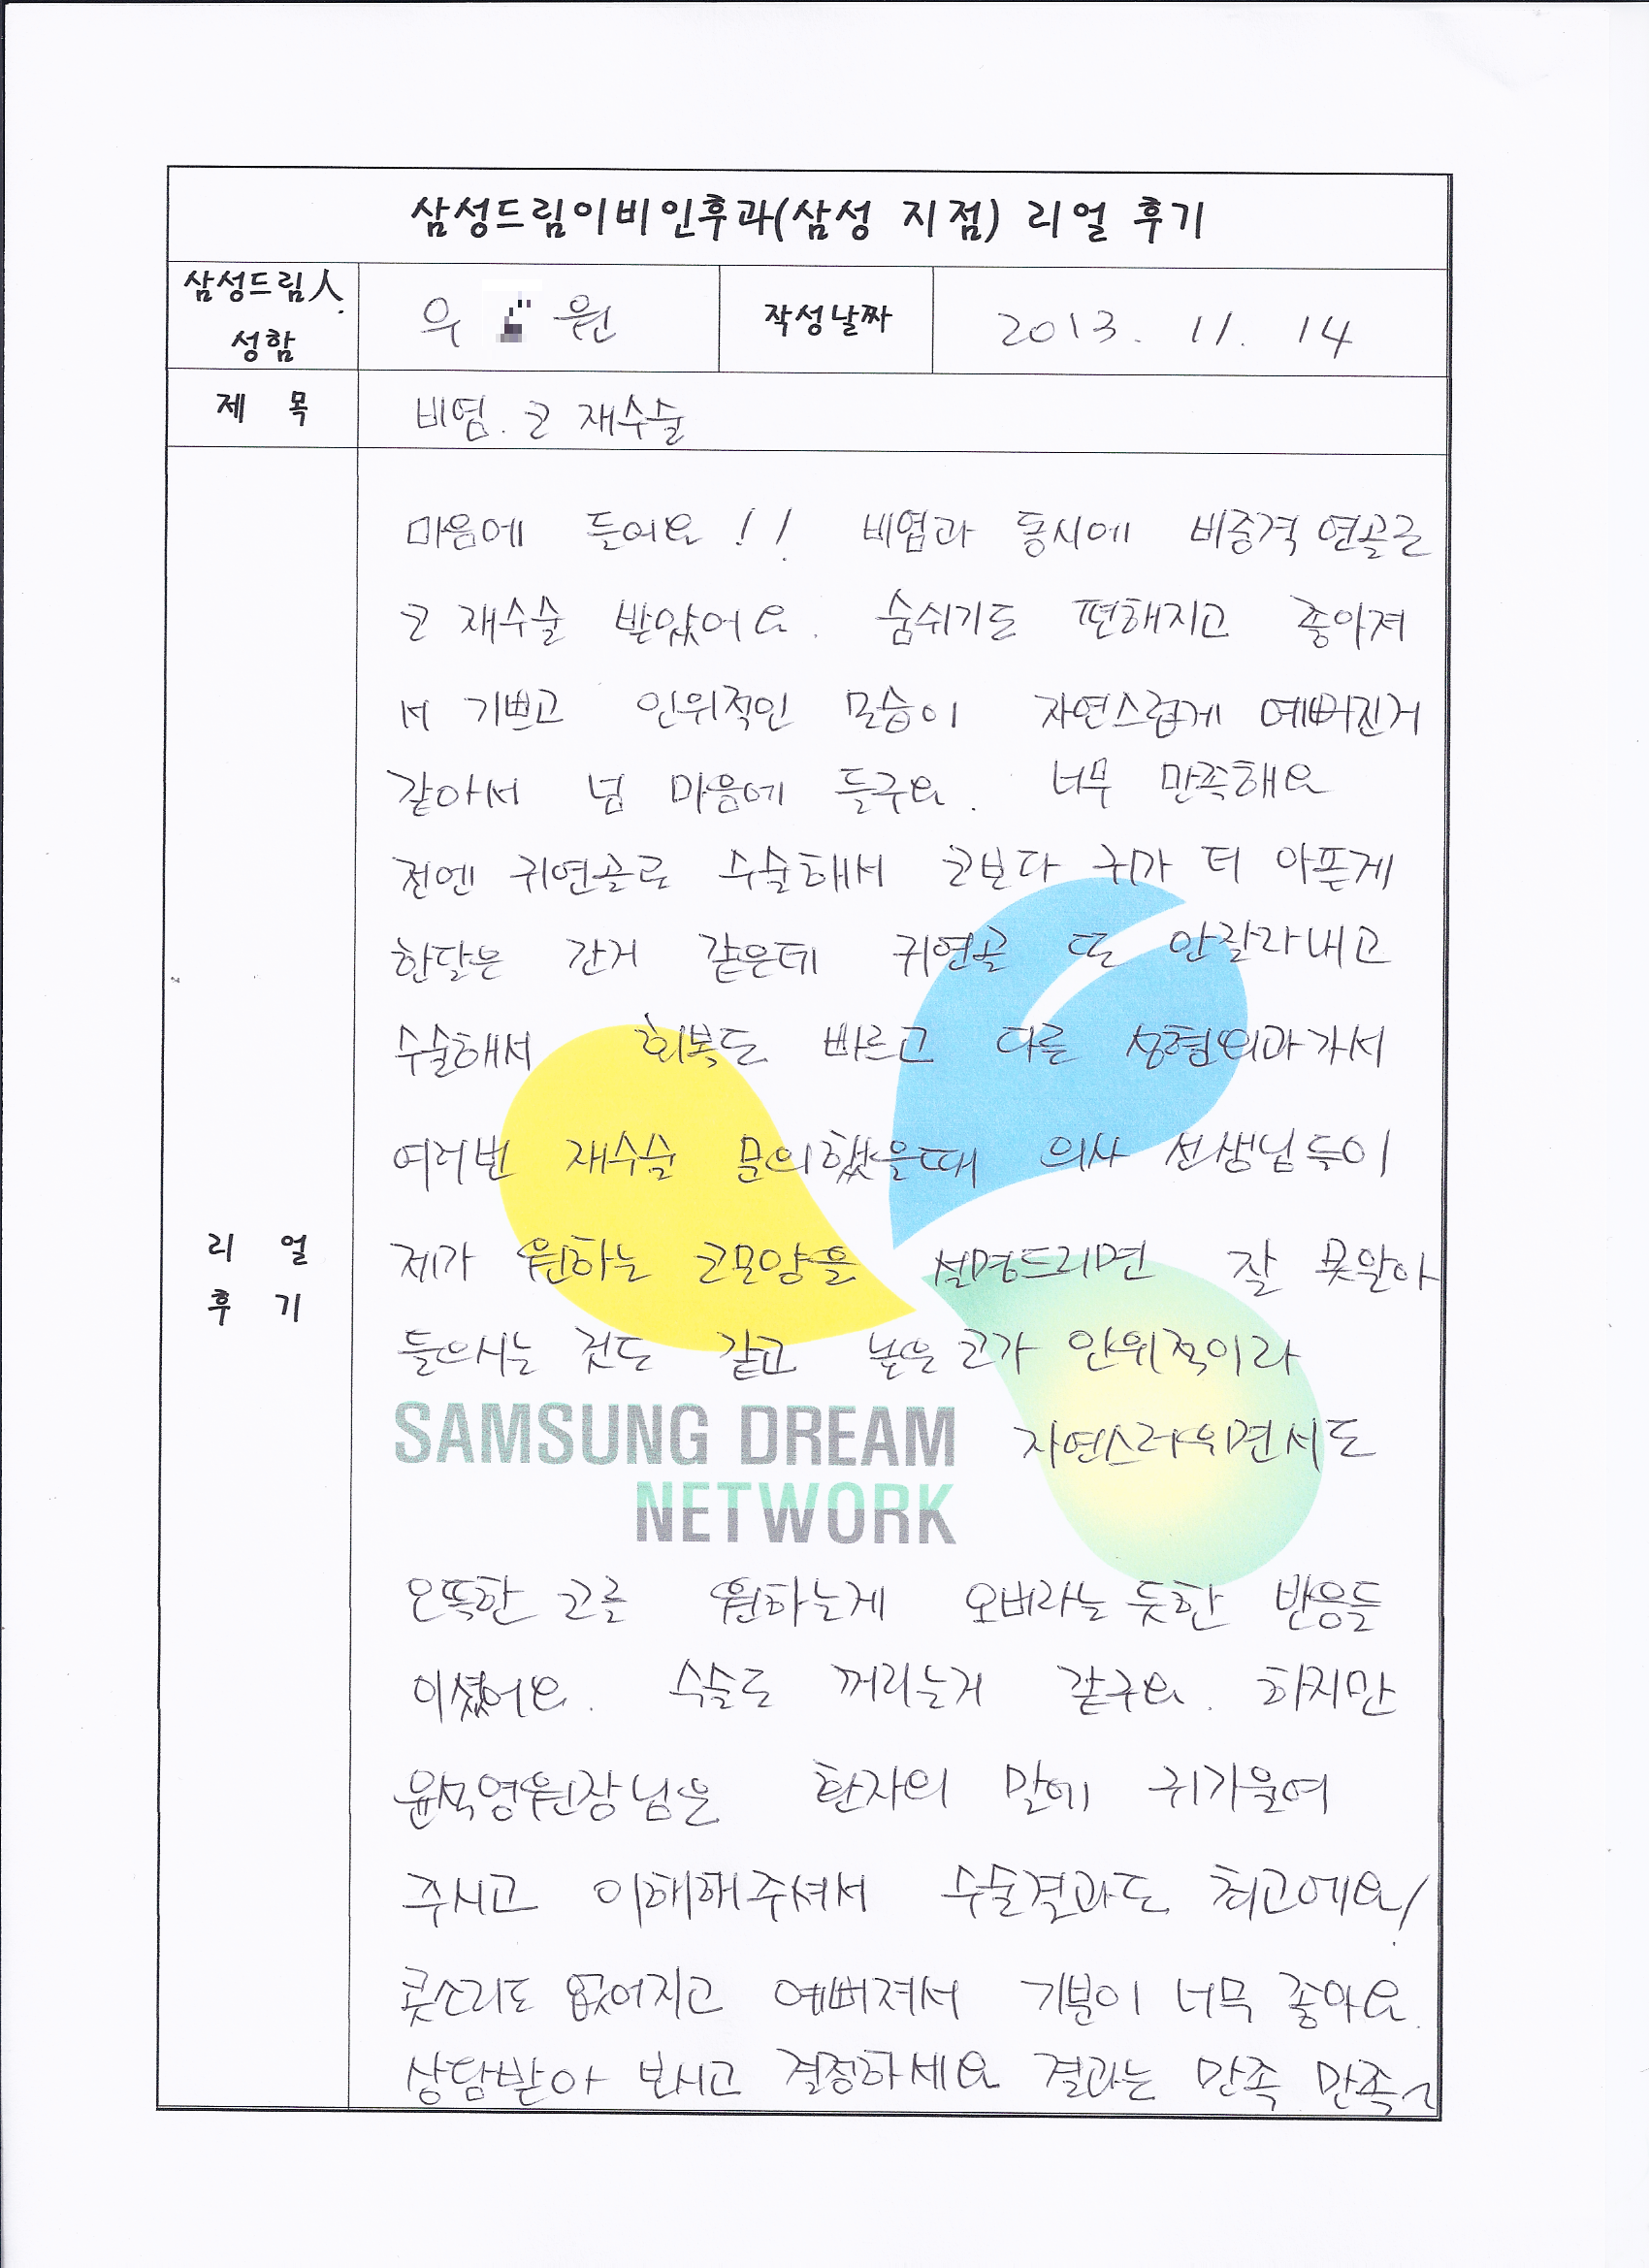 삼성드림이비인후과(삼성 지점) 리얼 후기
삼성드림人 성함
우 원
작성날짜
2013. 11. 14
제 목
비염. 코 재수술
리 얼
후 기
마음에 들어요!! 비염과 동시에 비중격 연골로
코 재수술 받았어요. 숨쉬기도 편해지고 좋아져
서 기쁘고 인위적인 모습이 자연스럽게 예뻐진거
같아서 넘 마음에 들구요. 너무 만족해요
전엔 귀연골로 수술해서 코보다 귀가 더 아픈게
한달은 간거 같은데 귀연골 또 안잘라내고
수술해서 회복도 빠르고 다른 성형외과가서
여러번 재수술 문의했을때 의사 선생님들이
제가 원하는 코모양을 설명드리면 잘 못알아
들으시는 것도 같고 높은 코가 인위적이라
자연스러우면서도
SAMSUNG DREAM
NETWORK
오똑한 코를 원하는게 오버라는 듯한 반응들
이셨어요. 수술도 꺼리는거 같구요. 하지만
윤석영원장님은 환자의 말에 귀기울여
주시고 이해해주셔서 수술결과도 최고에요!
콧소리도 없어지고 예뻐져서 기분이 너무 좋아요.
상담받아 보시고 결정하세요 결과는 만족 만족~